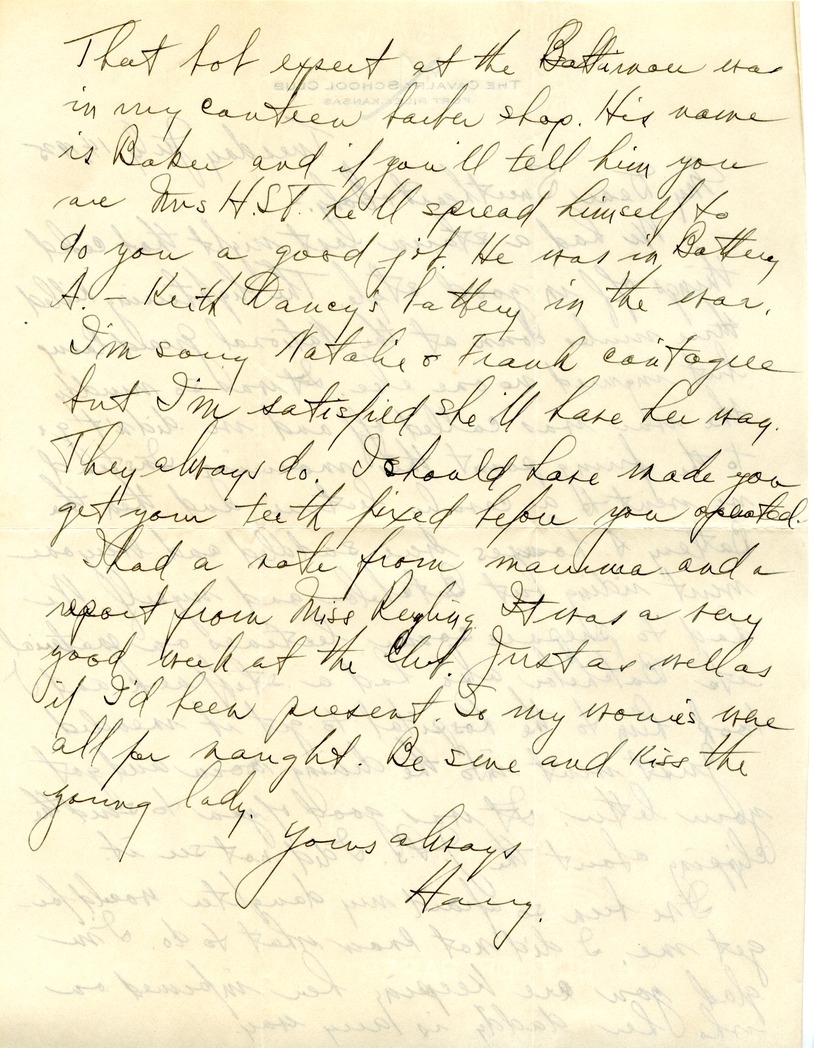 That bob expert at the Baltimore was
in my canteen barber shop. His name
is Baker and if you'll tell him you
are Mrs H.S.T. he'll spread himself to
do you a good job. He was in Battery
A. - Keith Dancy's battery in the war.
I'm sorry Natalie & Frank can't agree
but I'm satisfied she'll have her way.
They always do. I should have made you
get your teeth fixed before you operated.
I had a note from mamma and a
report from Miss Reyling It was a very
good week at the Club. Just as well as
if I'd been present. So my worries were
all for naught. Be sure and kiss the
young lady.
Yours always
Harry.